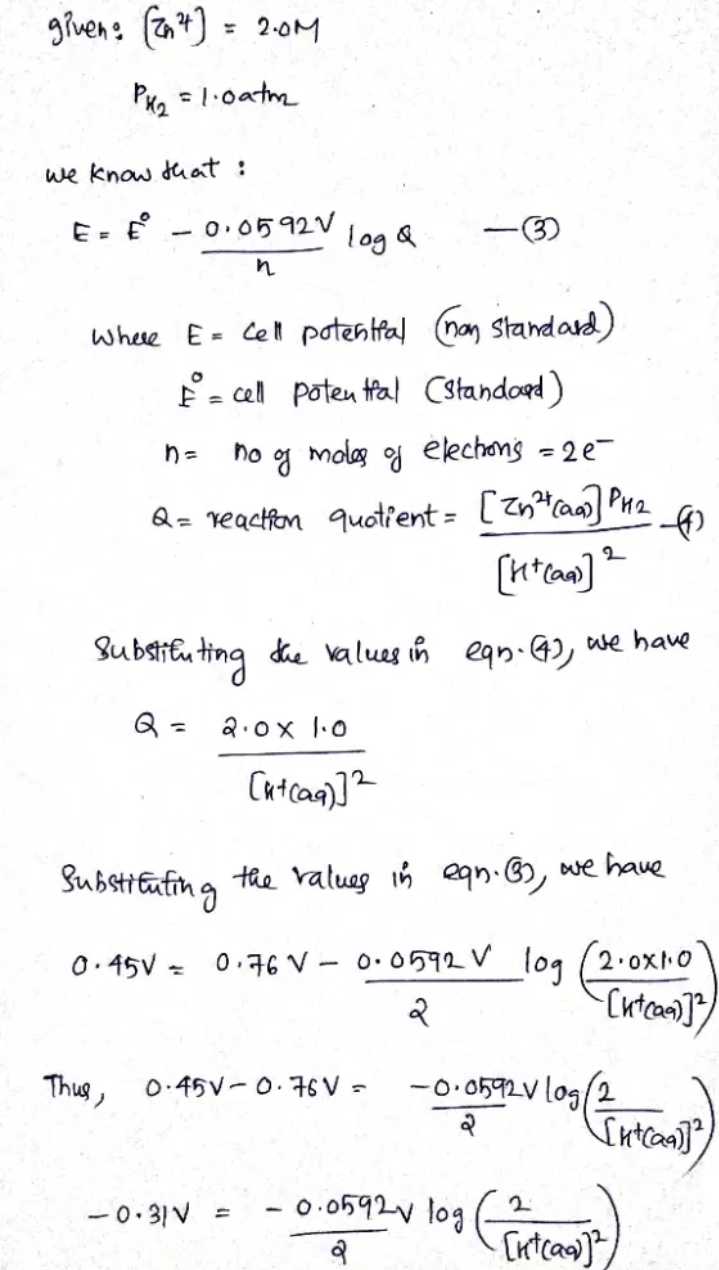 given: [Zn²⁺] = 2.0M
P_H₂ = 1.0atm
we know that :
E = E° - 0.0592V/n log Q —(3)
where E = cell potential (non standard)
E° = cell potential (standard)
n = no of moles of electrons = 2e⁻
Q = reaction quotient = [Zn²⁺(aq)] P_H₂ / [H⁺(aq)]² —(4)
Substituting the values in eqn.(4), we have
Q = 2.0 x 1.0 / [H⁺(aq)]²
Substituting the values in eqn.(3), we have
0.45V = 0.76 V - 0.0592 V/2 log (2.0x1.0/[H⁺(aq)]²)
Thus, 0.45V - 0.76 V = -0.0592V/2 log (2/[H⁺(aq)]²)
-0.31V = -0.0592V/2 log (2/[H⁺(aq)]²)